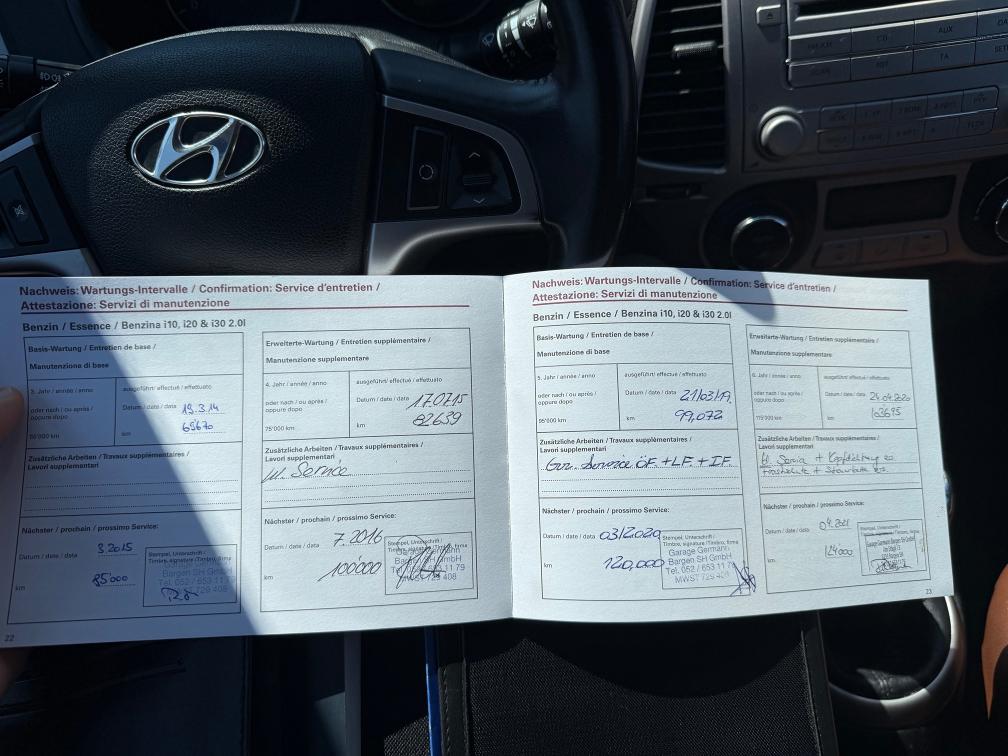 AUX
TA
Nachweis: Wartungs-Intervalle / Confirmation: Service d'entretien /
Attestazione: Servizi di manutenzione
Benzin / Essence / Benzina i10, i20 & i30 2.0l
Basis-Wartung / Entretien de base /
Manutenzione di base
3. Jahr / année / anno
oder nach / ou après /
oppure dopo
ausgeführt / effectué / effettuato
Datum / date / data 19.3.14
km 65670
Zusätzliche Arbeiten / Travaux supplémentaires /
Lavori supplementari
Nächster / prochain / prossimo Service:
Datum / date / data 3.2015
km 85'000
Stempel, Unterschrift /
Timbre, signature / Timbro, firma
Bargen SH GmbH
Tel. 052 / 653 11 79
22
Erweiterte-Wartung / Entretien supplémentaire /
Manutenzione supplementare
4. Jahr / année / anno
oder nach / ou après /
oppure dopo
75'000 km
ausgeführt / effectué / effettuato
Datum / date / data 17.07.15
km 82639
Zusätzliche Arbeiten / Travaux supplémentaires /
Lavori supplementari
kl. Service
Nächster / prochain / prossimo Service:
Datum / date / data 7.2016
km 100000
Stempel, Unterschrift /
Timbre, signature / Timbro, firma
Bargen SH GmbH
Tel. 052 / 653 11 79
Nachweis: Wartungs-Intervalle / Confirmation: Service d'entretien /
Attestazione: Servizi di manutenzione
Benzin / Essence / Benzina i10, i20 & i30 2.0l
Basis-Wartung / Entretien de base /
Manutenzione di base
5. Jahr / année / anno
oder nach / ou après /
oppure dopo
95'000 km
ausgeführt / effectué / effettuato
Datum / date / data 21/03/19.
km 99,072
Zusätzliche Arbeiten / Travaux supplémentaires /
Lavori supplementari
Gr. Service ÖF. + LF. + IF.
Nächster / prochain / prossimo Service:
Datum / date / data 03/2020
km 120,000
Stempel, Unterschrift /
Timbre, signature / Timbro, firma
Garage Germann
Bargen SH GmbH
Tel. 052 / 653 11 79
MWST 729 408
Erweiterte-Wartung / Entretien supplémentaire /
Manutenzione supplementare
6. Jahr / année / anno
oder nach / ou après /
oppure dopo
ausgeführt / effectué / effettuato
Datum / date / data 24.04.2020
km 103695
Zusätzliche Arbeiten / Travaux supplémentaires /
Lavori supplementari
kl Service + Kopfdichtung
Nächster / prochain / prossimo Service:
Datum / date / data 04.2021
km 124000
Stempel, Unterschrift /
Timbre, signature / Timbro, firma
23